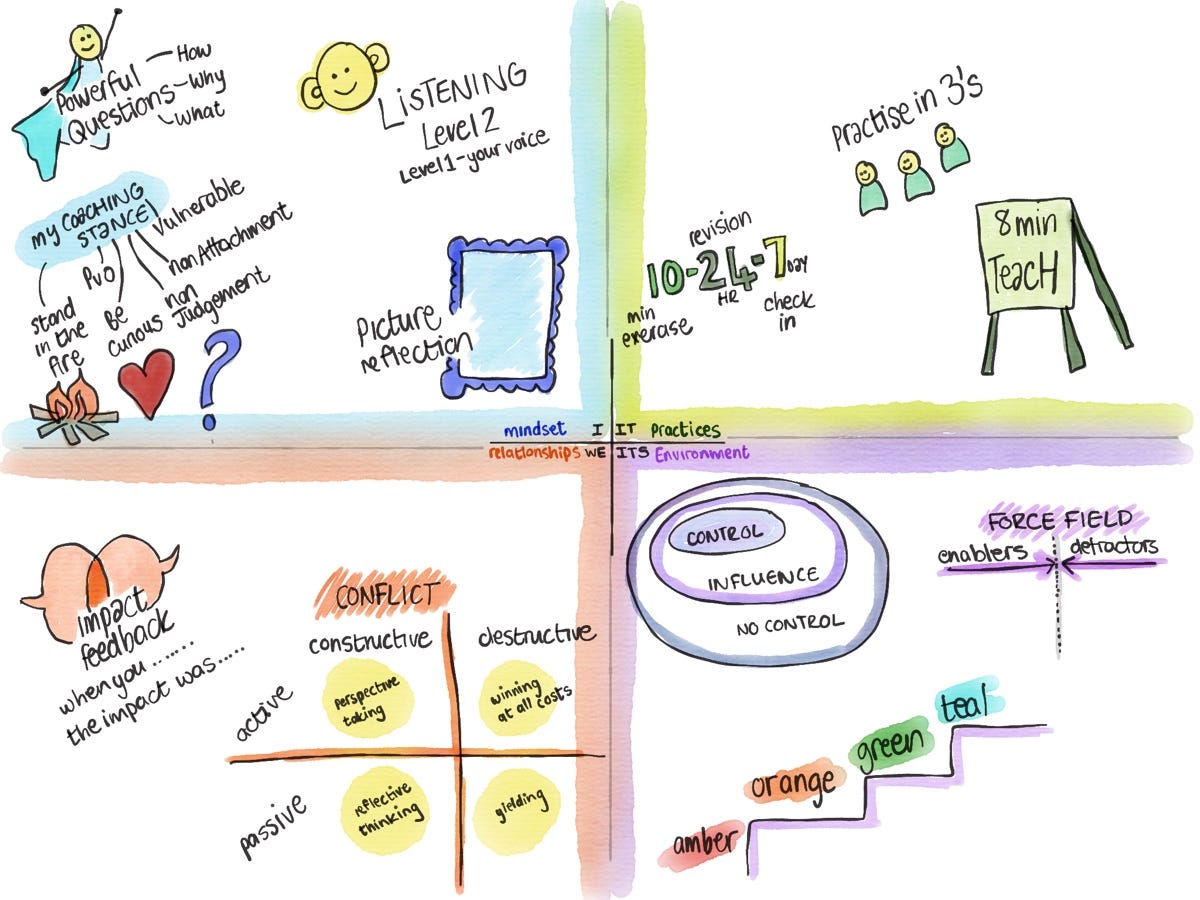 Powerful
Questions
How
Why
What
LISTENING
Level 2
Level 1 - your voice
my COACHING
STANCE
stand
in the
fire
PvO
Be
curious
non
Judgement
non Attachment
Vulnerable
?
Picture
reflection
Practise in 3's
revision
10-24-7
DAY
HR
min
exercise
check
in
8 min
TeacH
mindset I IT Practices
relationships WE ITS Environment
impact
feedback
when you .......
the impact was .....
CONFLICT
constructive destructive
active
perspective
taking
winning
at all costs
passive
reflective
thinking
yielding
CONTROL
INFLUENCE
NO CONTROL
FORCE FIELD
enablers detractors
teal
green
orange
amber